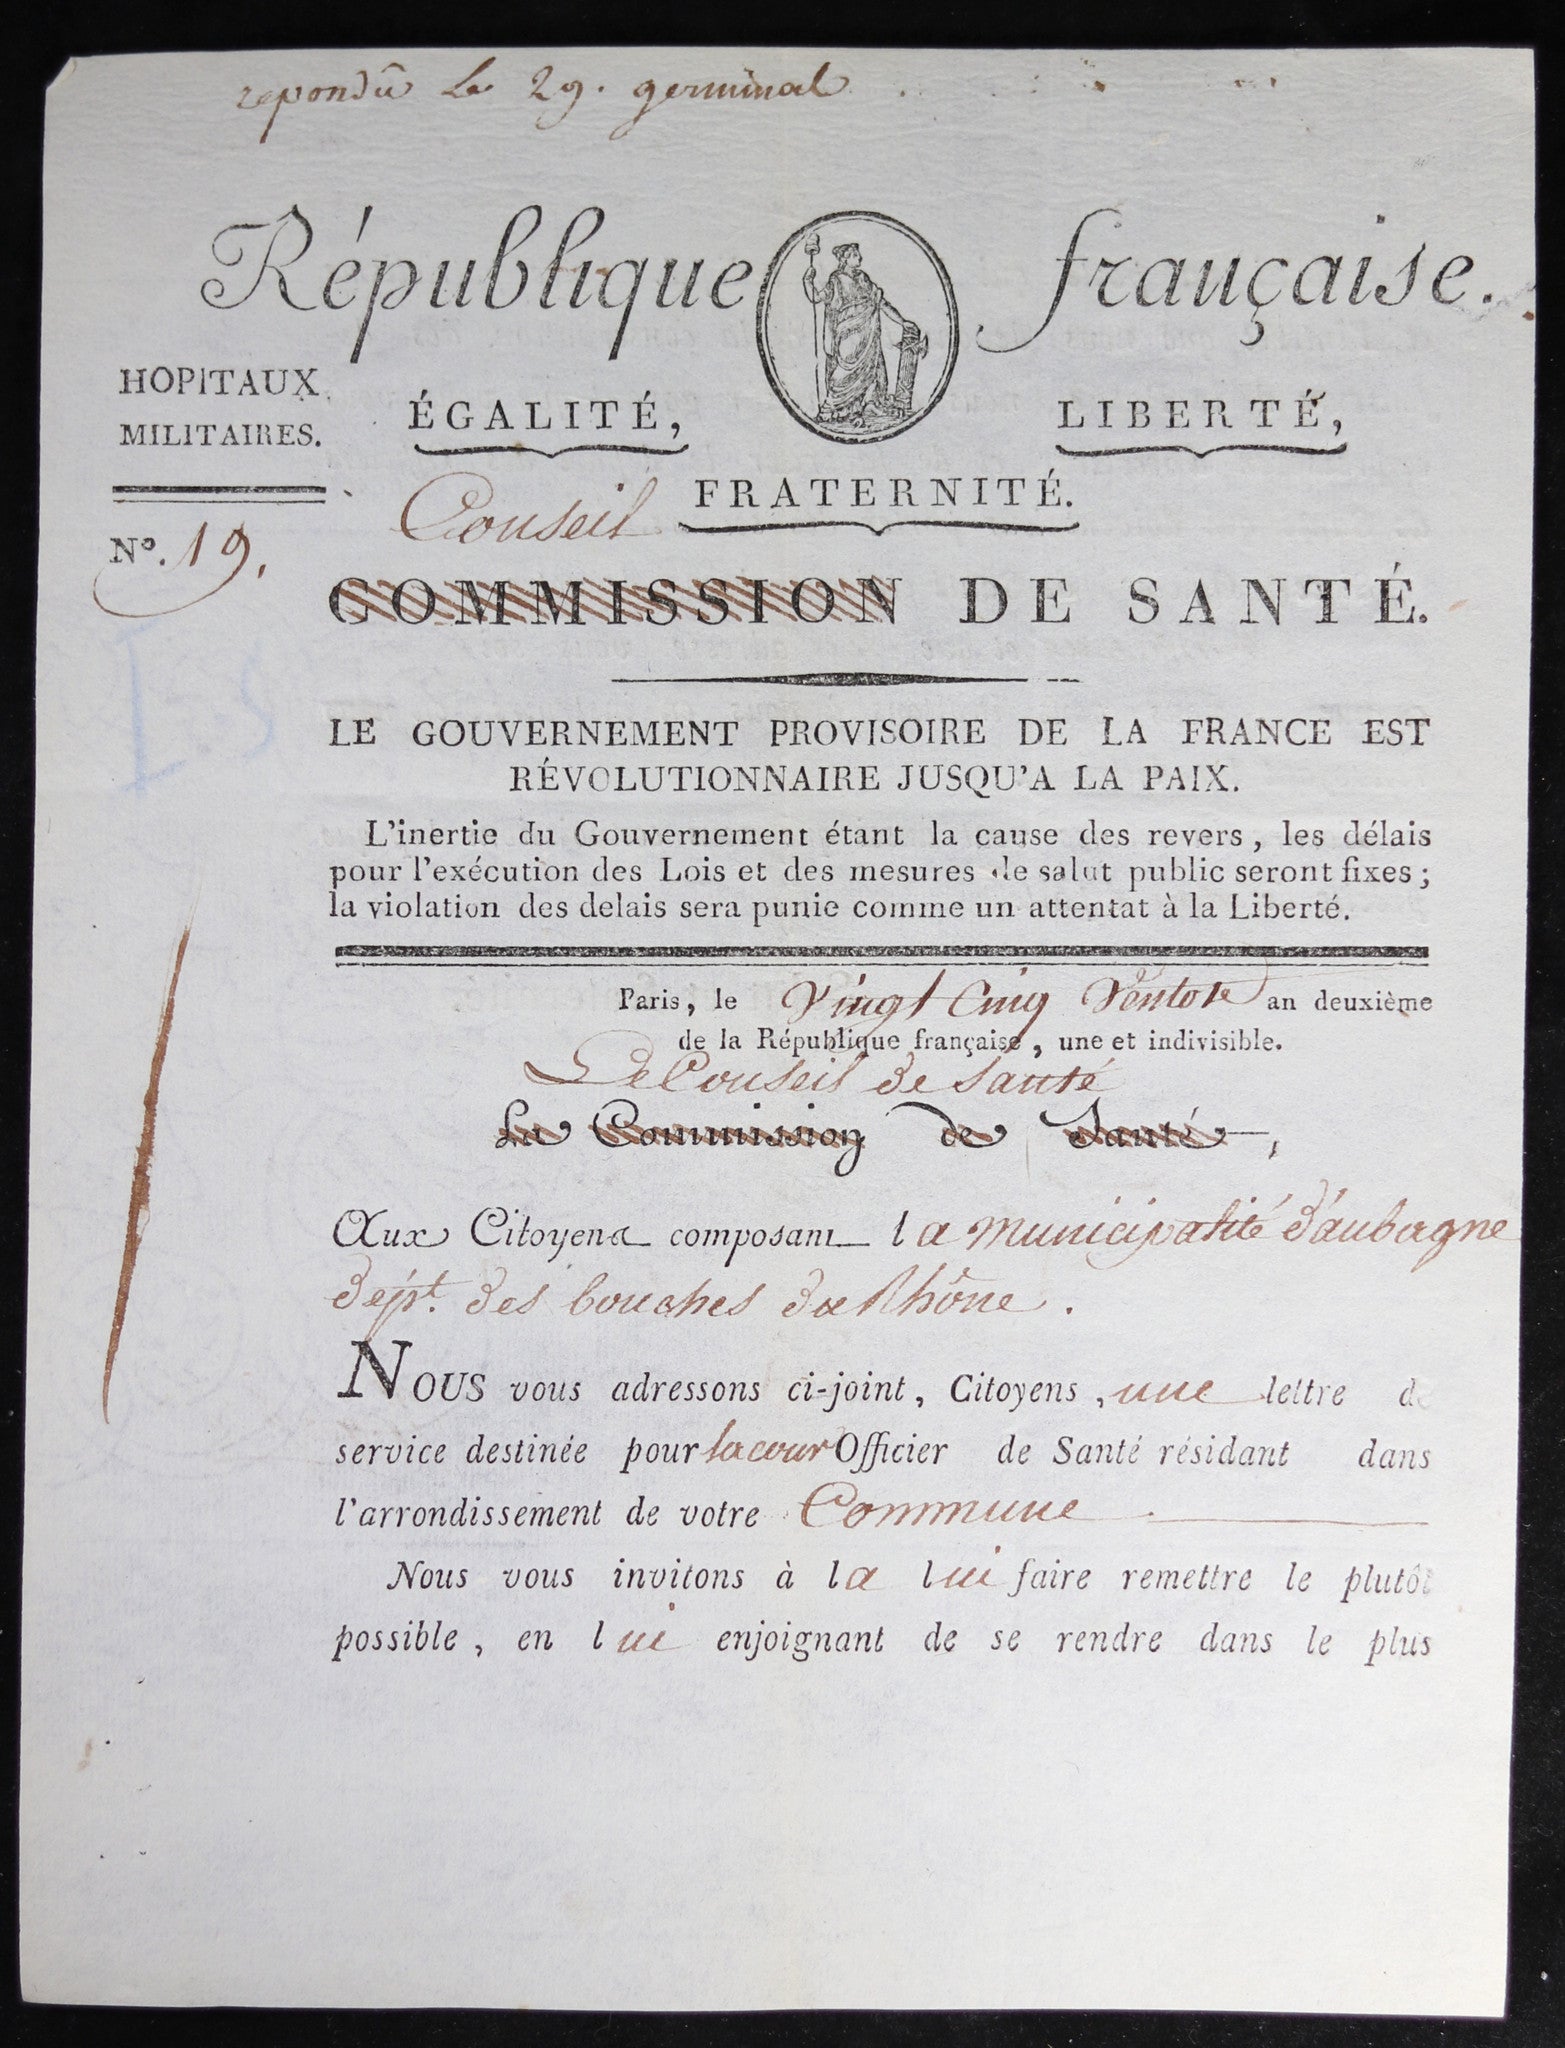 repondû le 29. germinal
République française.
HOPITAUX
MILITAIRES.
ÉGALITÉ, LIBERTÉ,
FRATERNITÉ.
N°. 19.
Conseil
COMMISSION DE SANTÉ.
LE GOUVERNEMENT PROVISOIRE DE LA FRANCE EST
RÉVOLUTIONNAIRE JUSQU'A LA PAIX.
L'inertie du Gouvernement étant la cause des revers, les délais
pour l'exécution des Lois et des mesures de salut public seront fixes ;
la violation des delais sera punie comme un attentat à la Liberté.
Paris, le Vingt Cinq Ventose an deuxième
de la République française, une et indivisible.
Le Conseil de Santé
La Commission de Santé,
Aux Citoyens composant la Municipalité d'aubagne
dépt. des bouches du Rhône.
NOUS vous adressons ci-joint, Citoyens, une lettre de
service destinée pour lacour Officier de Santé résidant dans
l'arrondissement de votre Commune
Nous vous invitons à la lui faire remettre le plutôt
possible, en lui enjoignant de se rendre dans le plus